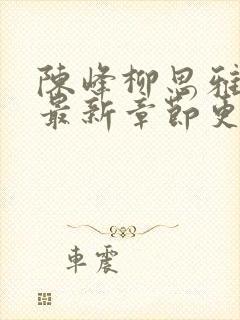 陳峰柳思雅
最新章節更
車震